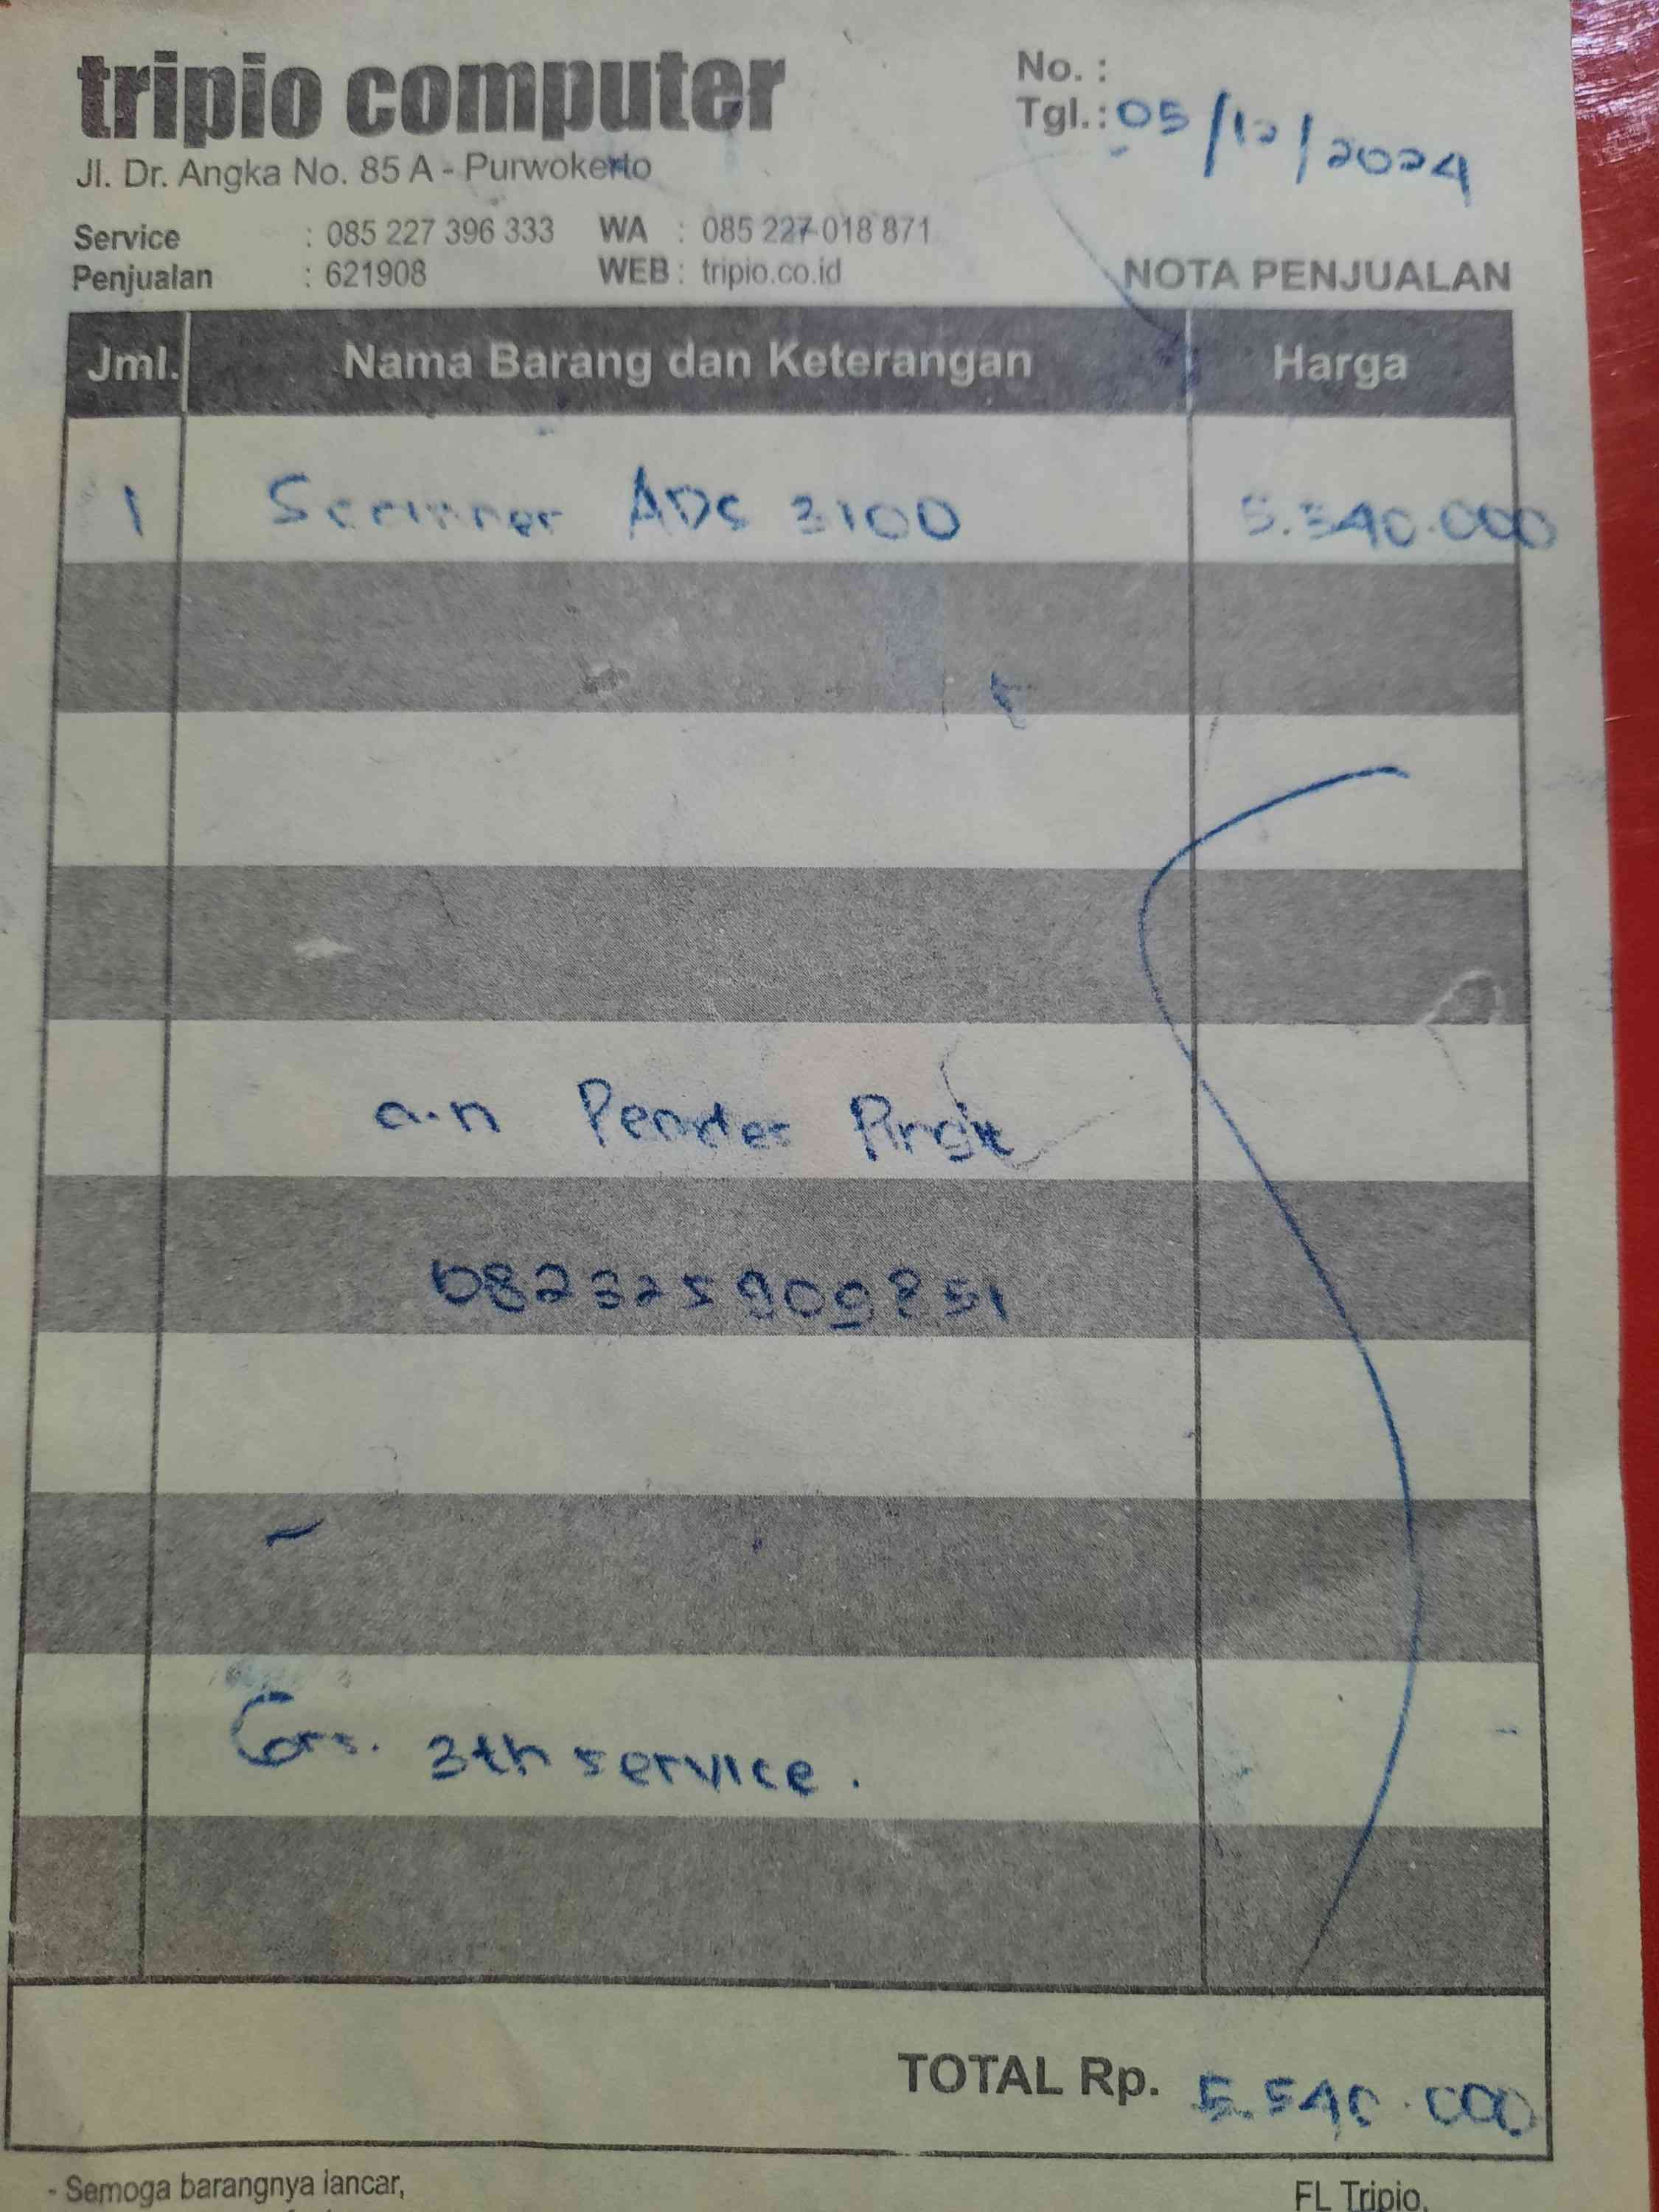 tripio computer
No. :
Tgl.: 05/12/2024
Jl. Dr. Angka No. 85 A - Purwokerto
Service : 085 227 396 333 WA : 085 227 018 871
Penjualan : 621908 WEB : tripio.co.id
NOTA PENJUALAN
Jml. Nama Barang dan Keterangan Harga
1 Scanner ADS 3100 .000
a.n
082325909851
Grs. 3th service.
TOTAL Rp. 5.540.000
- Semoga barangnya lancar,
FL Tripio,